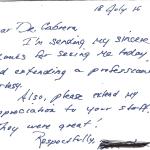 18 July 16
ear Dr. Cabrera
I'm sending my sincere
anks for seeing me today,
d extending a profession
rtesy.
Also, please extend my
preciation to your staff.
They were great!
Respectfully,